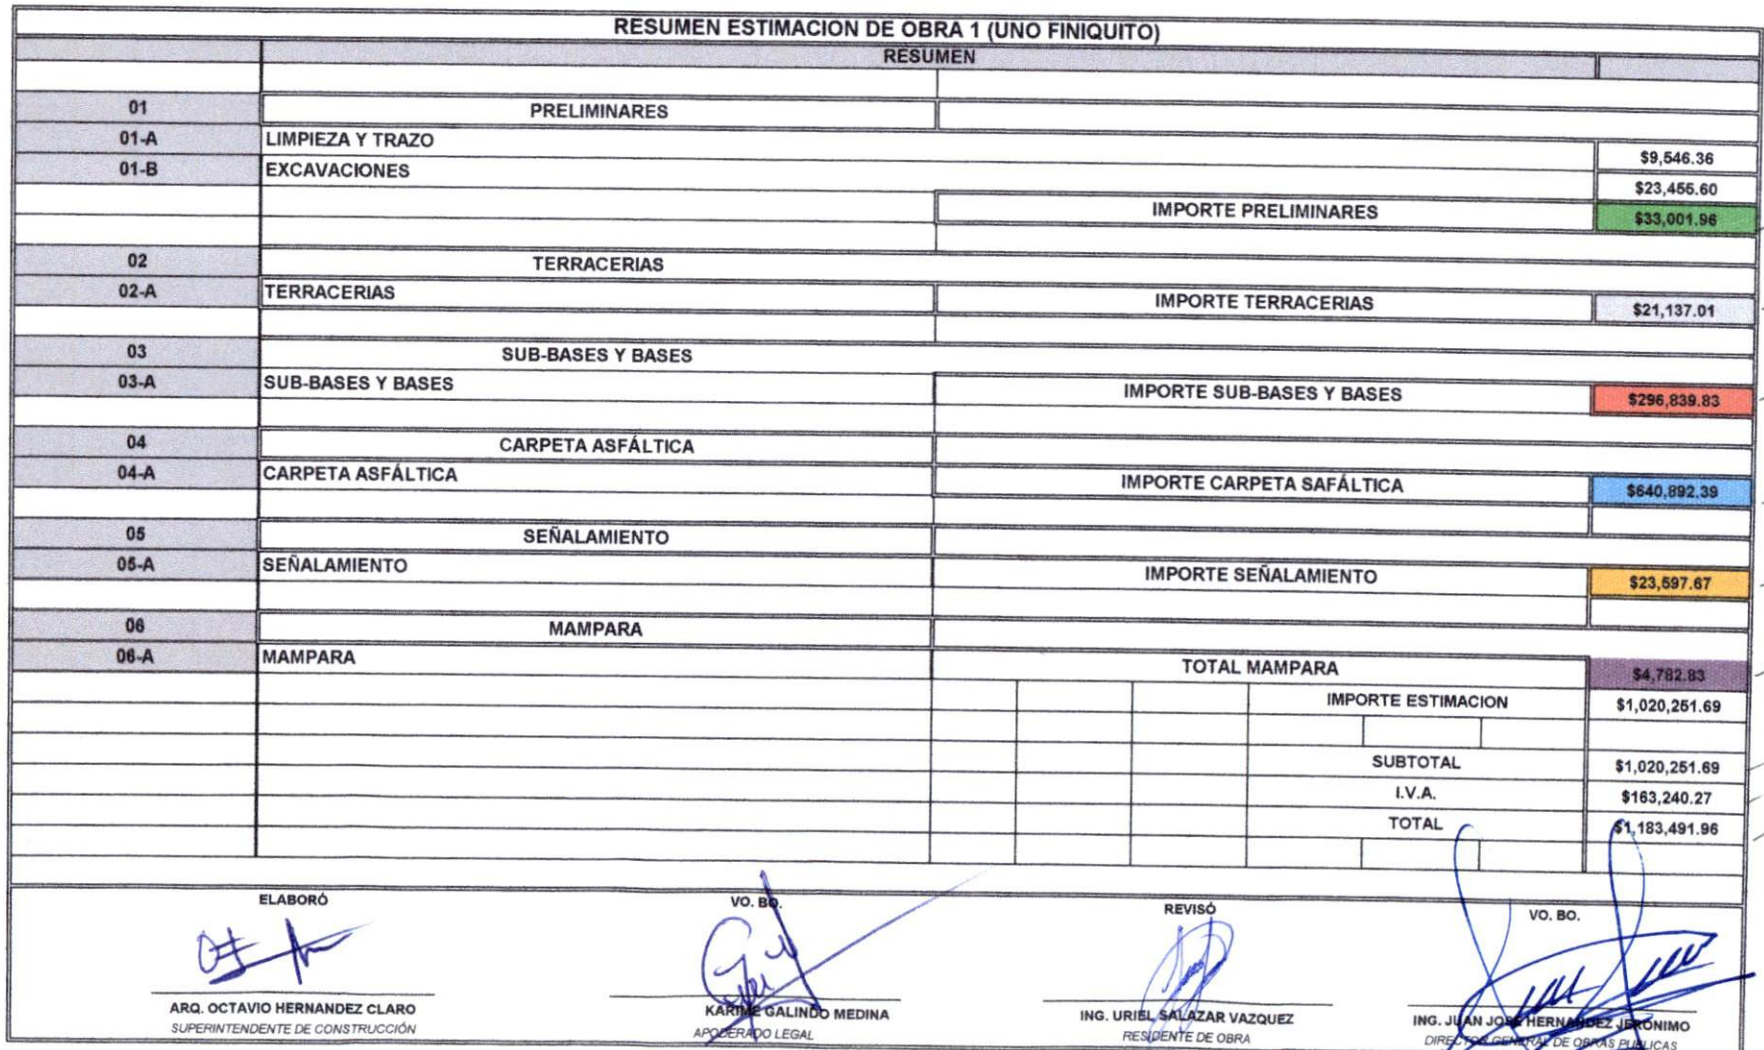 RESUMEN ESTIMACION DE OBRA 1 (UNO FINIQUITO)
RESUMEN
01 PRELIMINARES
01-A LIMPIEZA Y TRAZO $9,546.36
01-B EXCAVACIONES $23,455.60
IMPORTE PRELIMINARES $33,001.96
02 TERRACERIAS
02-A TERRACERIAS IMPORTE TERRACERIAS $21,137.01
03 SUB-BASES Y BASES
03-A SUB-BASES Y BASES IMPORTE SUB-BASES Y BASES $296,839.83
04 CARPETA ASFÁLTICA
04-A CARPETA ASFÁLTICA IMPORTE CARPETA SAFÁLTICA $640,892.39
05 SEÑALAMIENTO
05-A SEÑALAMIENTO IMPORTE SEÑALAMIENTO $23,597.67
06 MAMPARA
06-A MAMPARA TOTAL MAMPARA $4,782.83
IMPORTE ESTIMACION $1,020,251.69
SUBTOTAL $1,020,251.69
I.V.A. $163,240.27
TOTAL $1,183,491.96
ELABORÓ VO. BO. REVISÓ VO. BO.
ARQ. OCTAVIO HERNANDEZ CLARO KARIME GALINDO MEDINA ING. URIEL SALAZAR VAZQUEZ ING. JUAN JOSE HERNANDEZ JERÓNIMO
SUPERINTENDENTE DE CONSTRUCCIÓN APODERADO LEGAL RESIDENTE DE OBRA DIRECTOR GENERAL DE OBRAS PUBLICAS